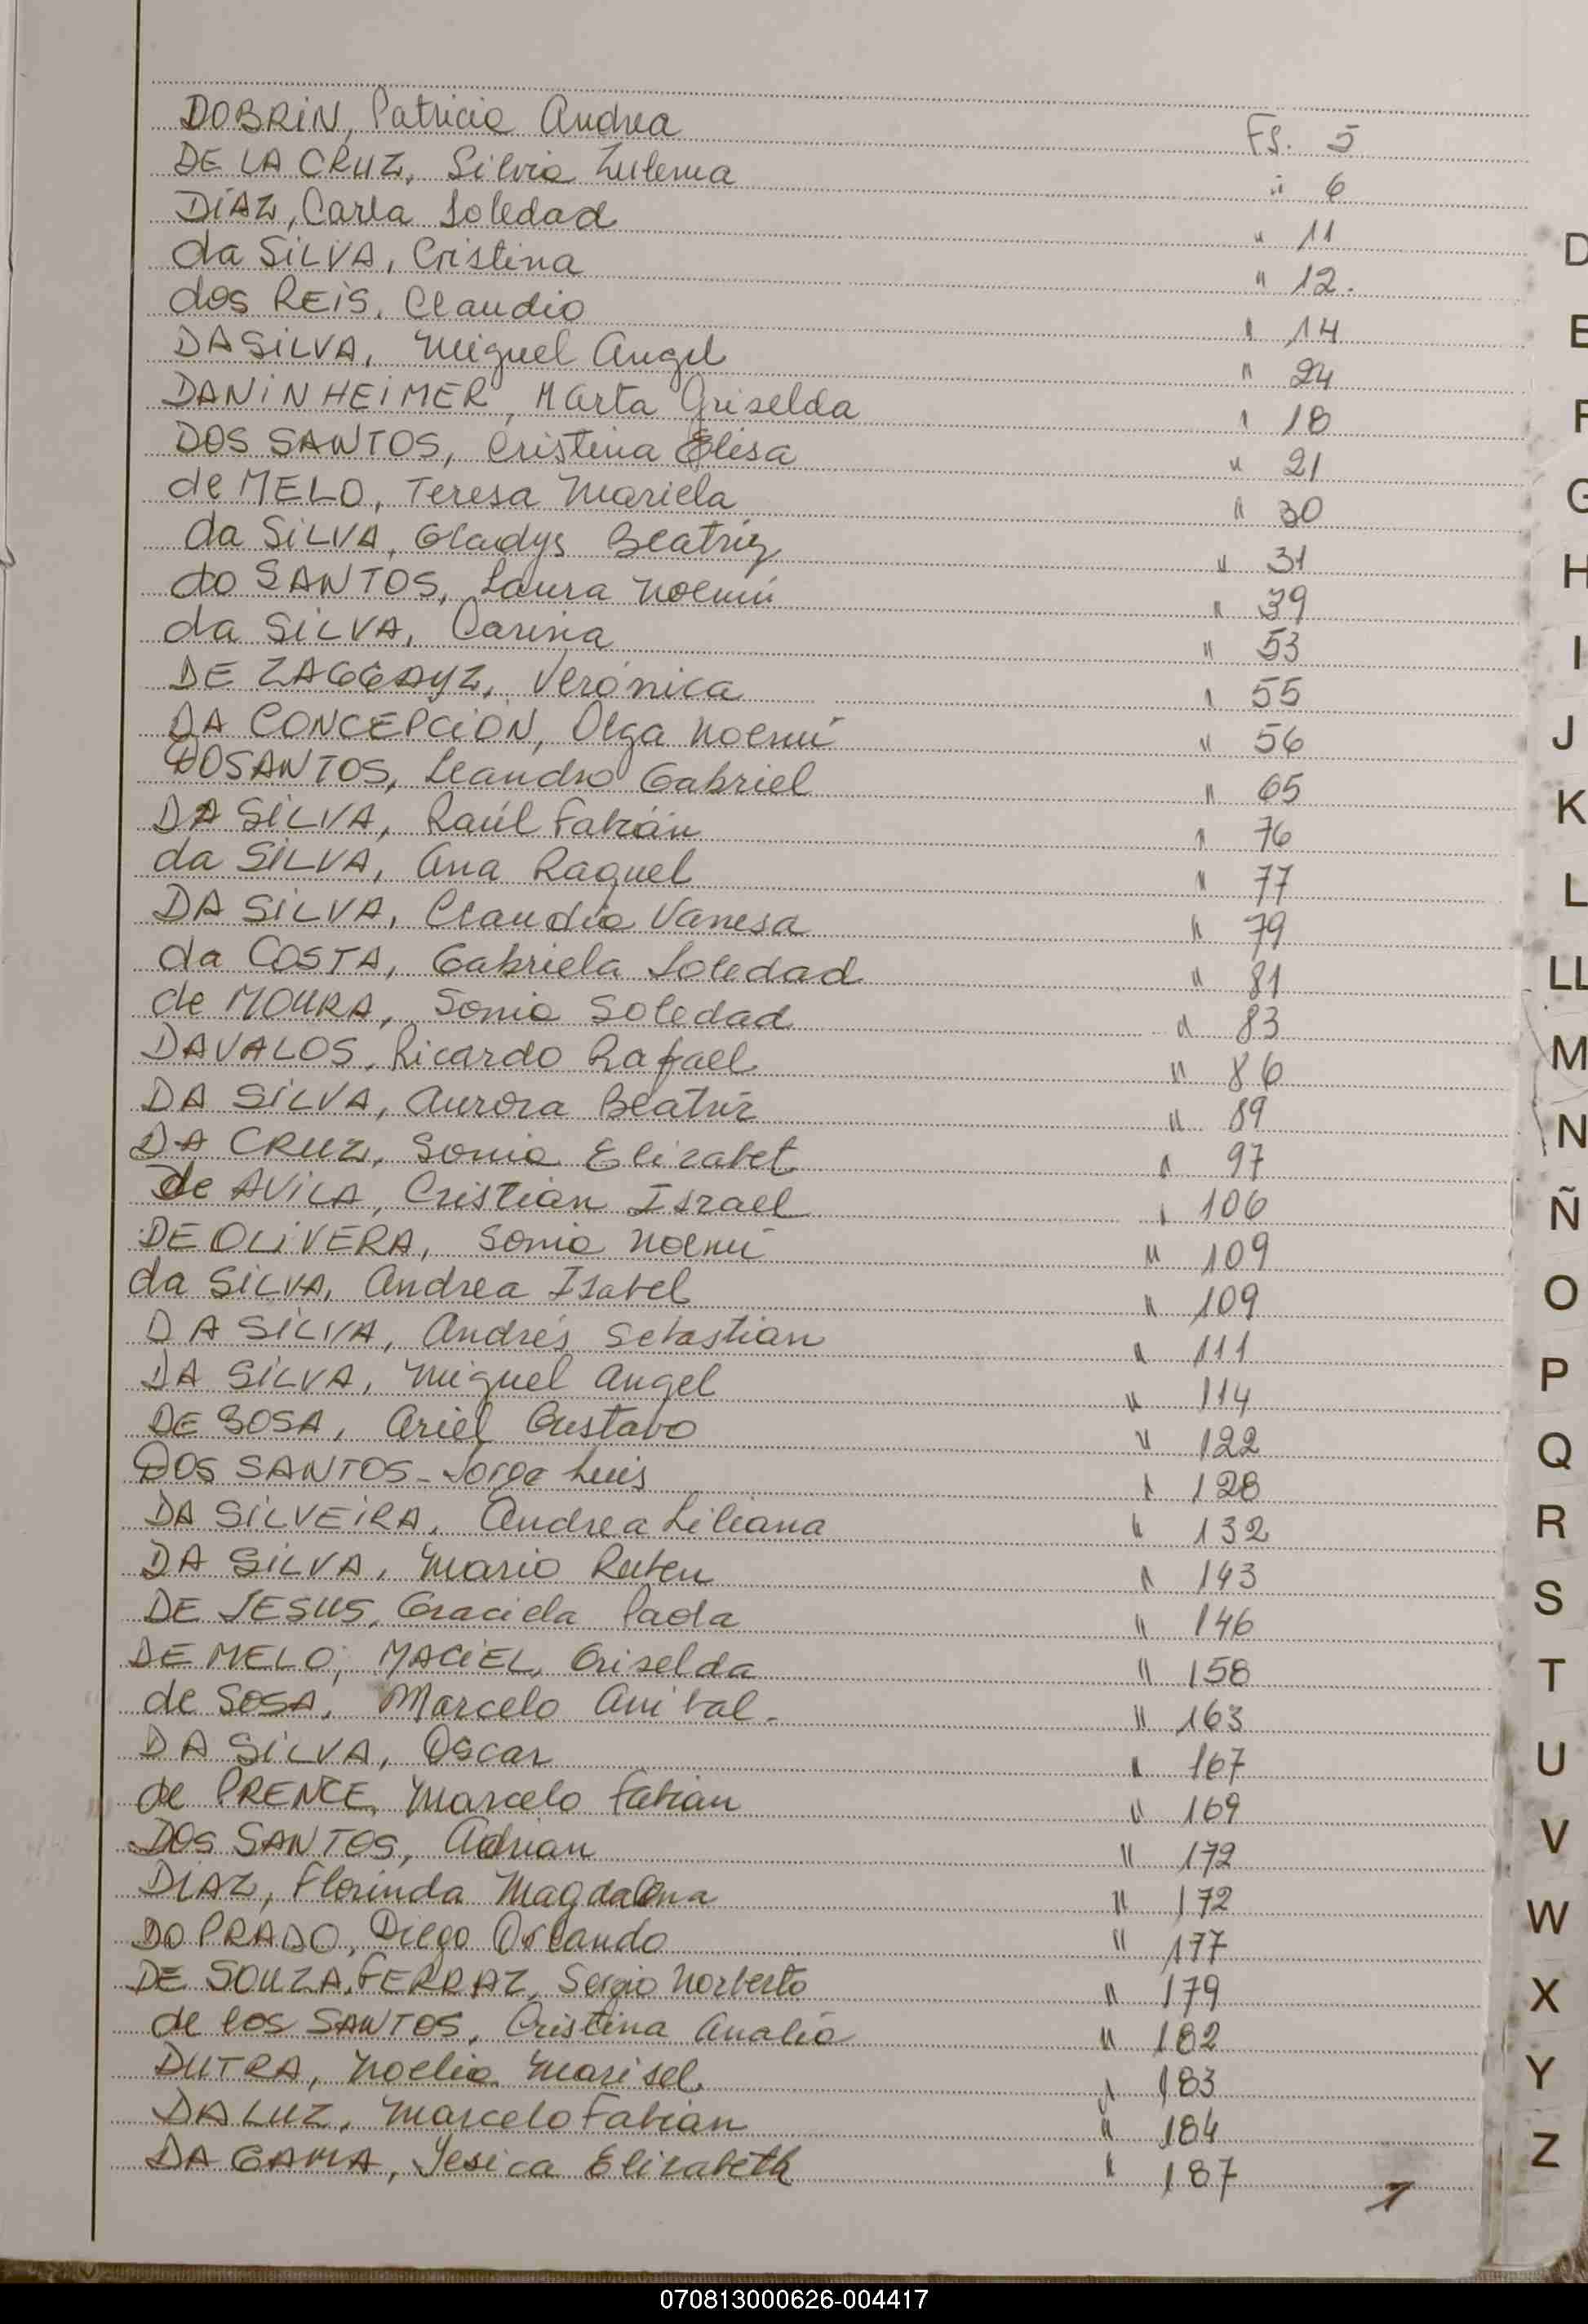 DOBRIN, Patricia Andrea Fs. 5
DE LA CRUZ, Silvia Zulema " 6
DIAZ, Carla Soledad " 11
da SILVA, Cristina " 12.
dos REIS, Claudio " 14
DA SILVA, Miguel Angel " 24
DANINHEIMER, Marta Griselda " 18
DOS SANTOS, Cristina Elisa " 21
de MELO, Teresa Mariela " 30
da SILVA, Gladys Beatriz " 31
do SANTOS, Laura Noemí " 39
da SILVA, Carina " 53
DE Verónica " 55
DA CONCEPCIÓN, Olga Noemí " 56
DOSANTOS, Leandro Gabriel " 65
DA SILVA, Raúl Fabián " 76
da SILVA, Ana Raquel " 77
DA SILVA, Claudia Vanesa " 79
da COSTA, Gabriela Soledad " 81
de MOURA, Sonia Soledad " 83
DAVALOS, Ricardo Rafael " 86
DA SILVA, Aurora Beatriz " 89
DA CRUZ, Sonia Elizabet " 97
de AVILA, Cristian Israel " 106
DE OLIVERA, Sonia Noemí " 109
da SILVA, Andrea Isabel " 109
DA SILVA, Andrés Sebastian " 111
DA SILVA, Miguel Angel " 114
DE SOSA, Ariel Gustavo " 122
DOS SANTOS - Jorge Luis " 128
DA SILVEIRA, Andrea Liliana " 132
DA SILVA, Mario Ruben " 143
DE JESUS, Graciela Paola " 146
DE MELO, MACIEL, Griselda " 158
de SOSA, Marcelo Anibal. " 163
DA SILVA, Oscar " 167
de PRENCE, Marcelo Fabian " 169
DOS SANTOS, Adrian " 172
DIAZ, Florinda Magdalena " 172
DO PRADO, Diego Orlando " 177
DE SOUZA FERRAZ, Sergio Norberto " 179
de los SANTOS, Cristina Analia " 182
DUTRA, Noelia Marisel " 183
DA LUZ, Marcelo Fabian " 184
DA GAMA, Yesica Elizabeth " 187
1
D
E
F
G
H
I
J
K
L
LL
M
N
Ñ
O
P
Q
R
S
T
U
V
W
X
Y
Z
070813000626-004417